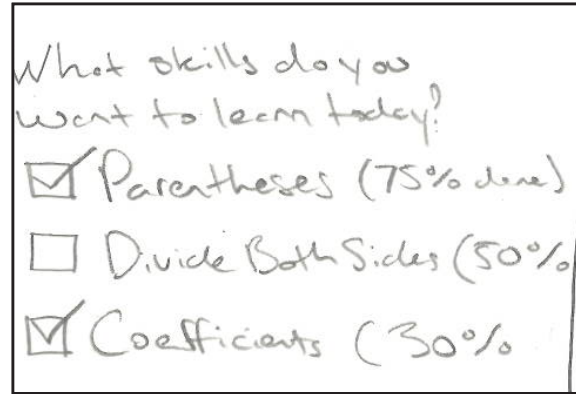 What skills do you
want to learn today?
Parentheses (75% done)
Divide Both Sides (50%
Coefficients (30%